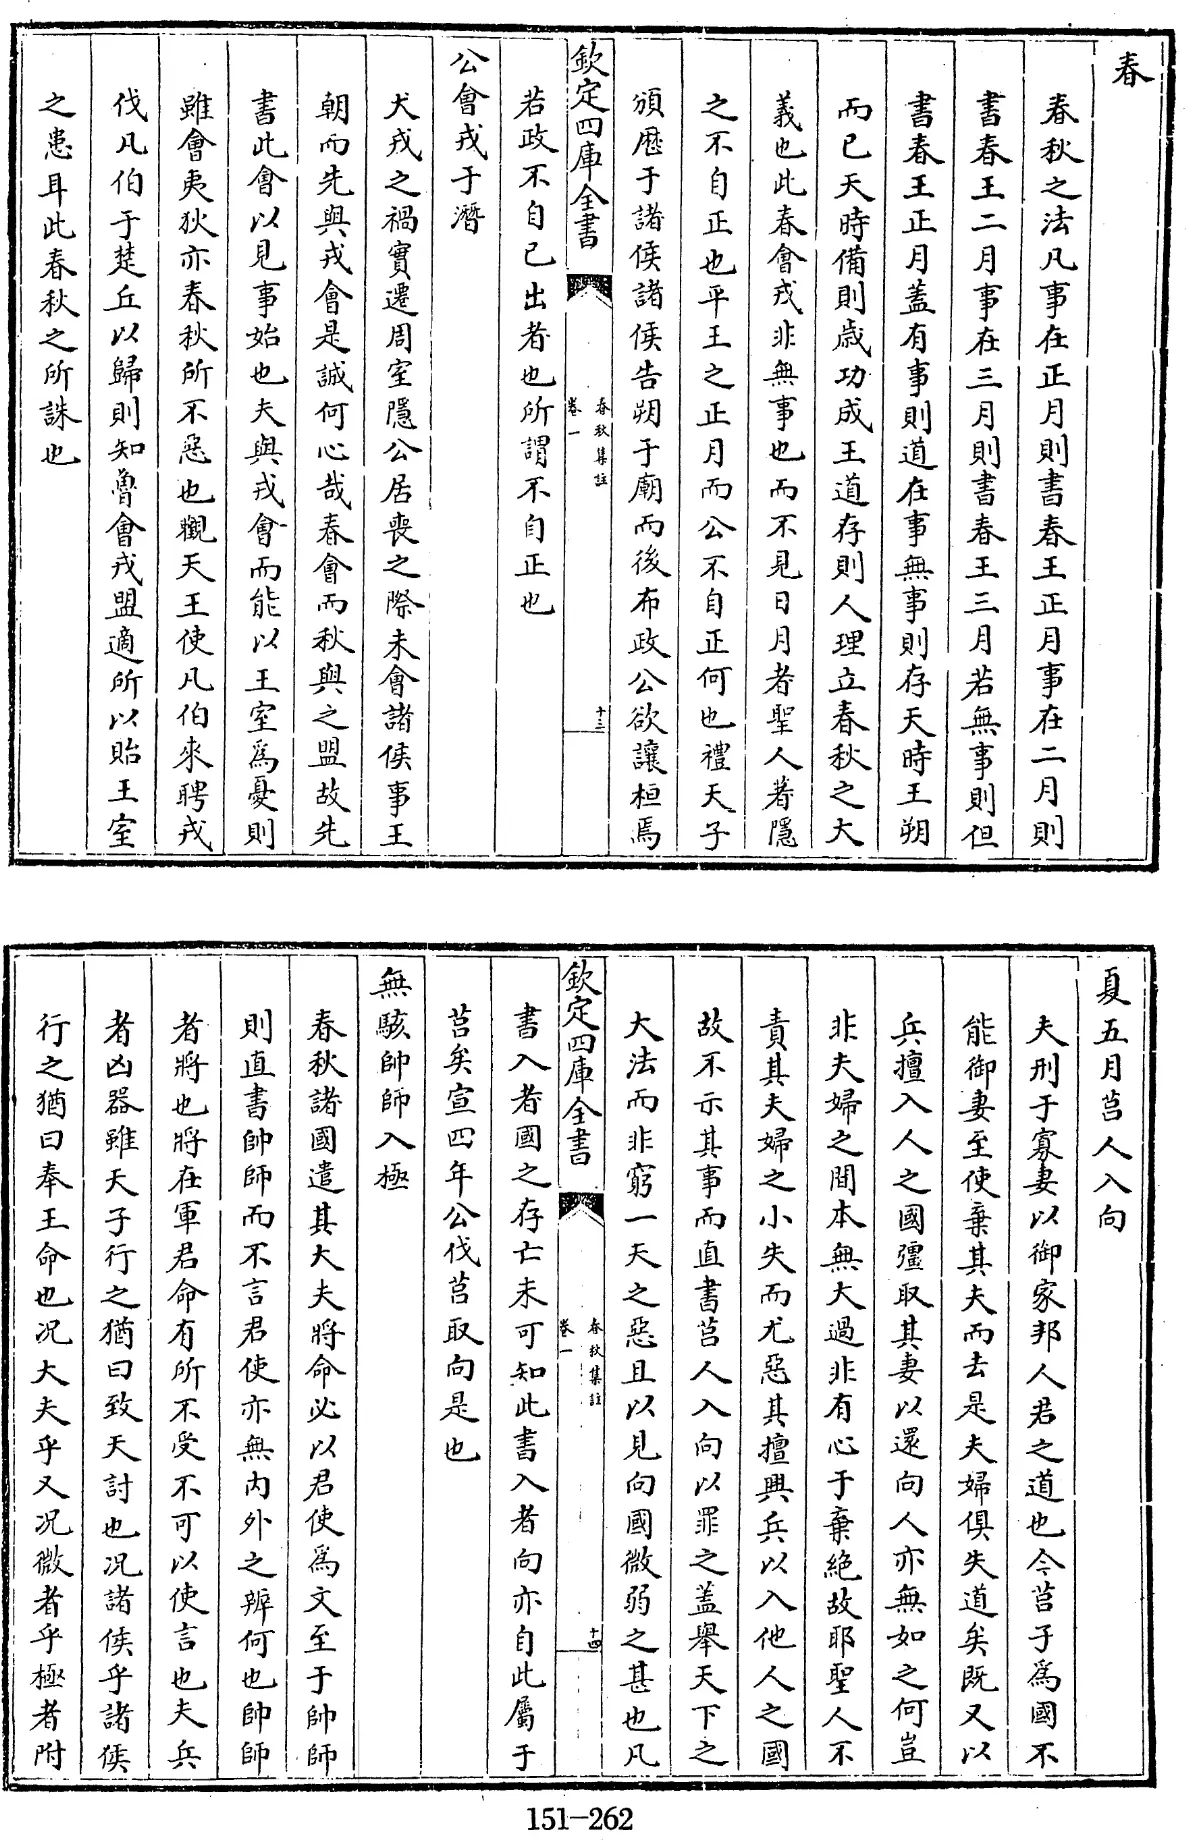 春
春秋之法凡事在正月則書春王正月事在二月則
書春王二月事在三月則書春王三月若無事則但
書春王正月蓋有事則道在事無事則存天時王朔
而已天時備則歳功成王道存則人理立春秋之大
義也此春會戎非無事也而不見日月者聖人著隱
之不自正也平王之正月而公不自正何也禮天子
頒厯于諸侯諸侯告朔于廟而後布政公欲讓桓焉
欽定四庫全書
春秋集註
卷一
十三
若政不自已出者也所謂不自正也
公會戎于潛
犬戎之禍實遷周室隱公居喪之際未會諸侯事王
朝而先與戎會是誠何心哉春會而秋與之盟故先
書此會以見事始也夫與戎會而能以王室爲憂則
雖會夷狄亦春秋所不惡也觀天王使凡伯來聘戎
伐凡伯于楚丘以歸則知魯會戎盟適所以貽王室
之患耳此春秋之所誅也
夏五月莒人入向
夫刑于寡妻以御家邦人君之道也今莒子爲國不
能御妻至使棄其夫而去是夫婦俱失道矣既又以
兵擅入人之國彊取其妻以還向人亦無如之何豈
非夫婦之間本無大過非有心于棄絶故耶聖人不
責其夫婦之小失而尤惡其擅興兵以入他人之國
故不示其事而直書莒人入向以罪之蓋舉天下之
大法而非窮一夫之惡且以見向國微弱之甚也凡
欽定四庫全書
春秋集註
卷一
十四
書入者國之存亡未可知此書入者向亦自此屬于
莒矣宣四年公伐莒取向是也
無駭帥師入極
春秋諸國遣其大夫將命必以君使爲文至于帥師
則直書帥師而不言君使亦無内外之辨何也帥師
者將也將在軍君命有所不受不可以使言也夫兵
者凶器雖天子行之猶曰致天討也况諸侯乎諸侯
行之猶曰奉王命也况大夫乎又况微者乎極者附
151-262